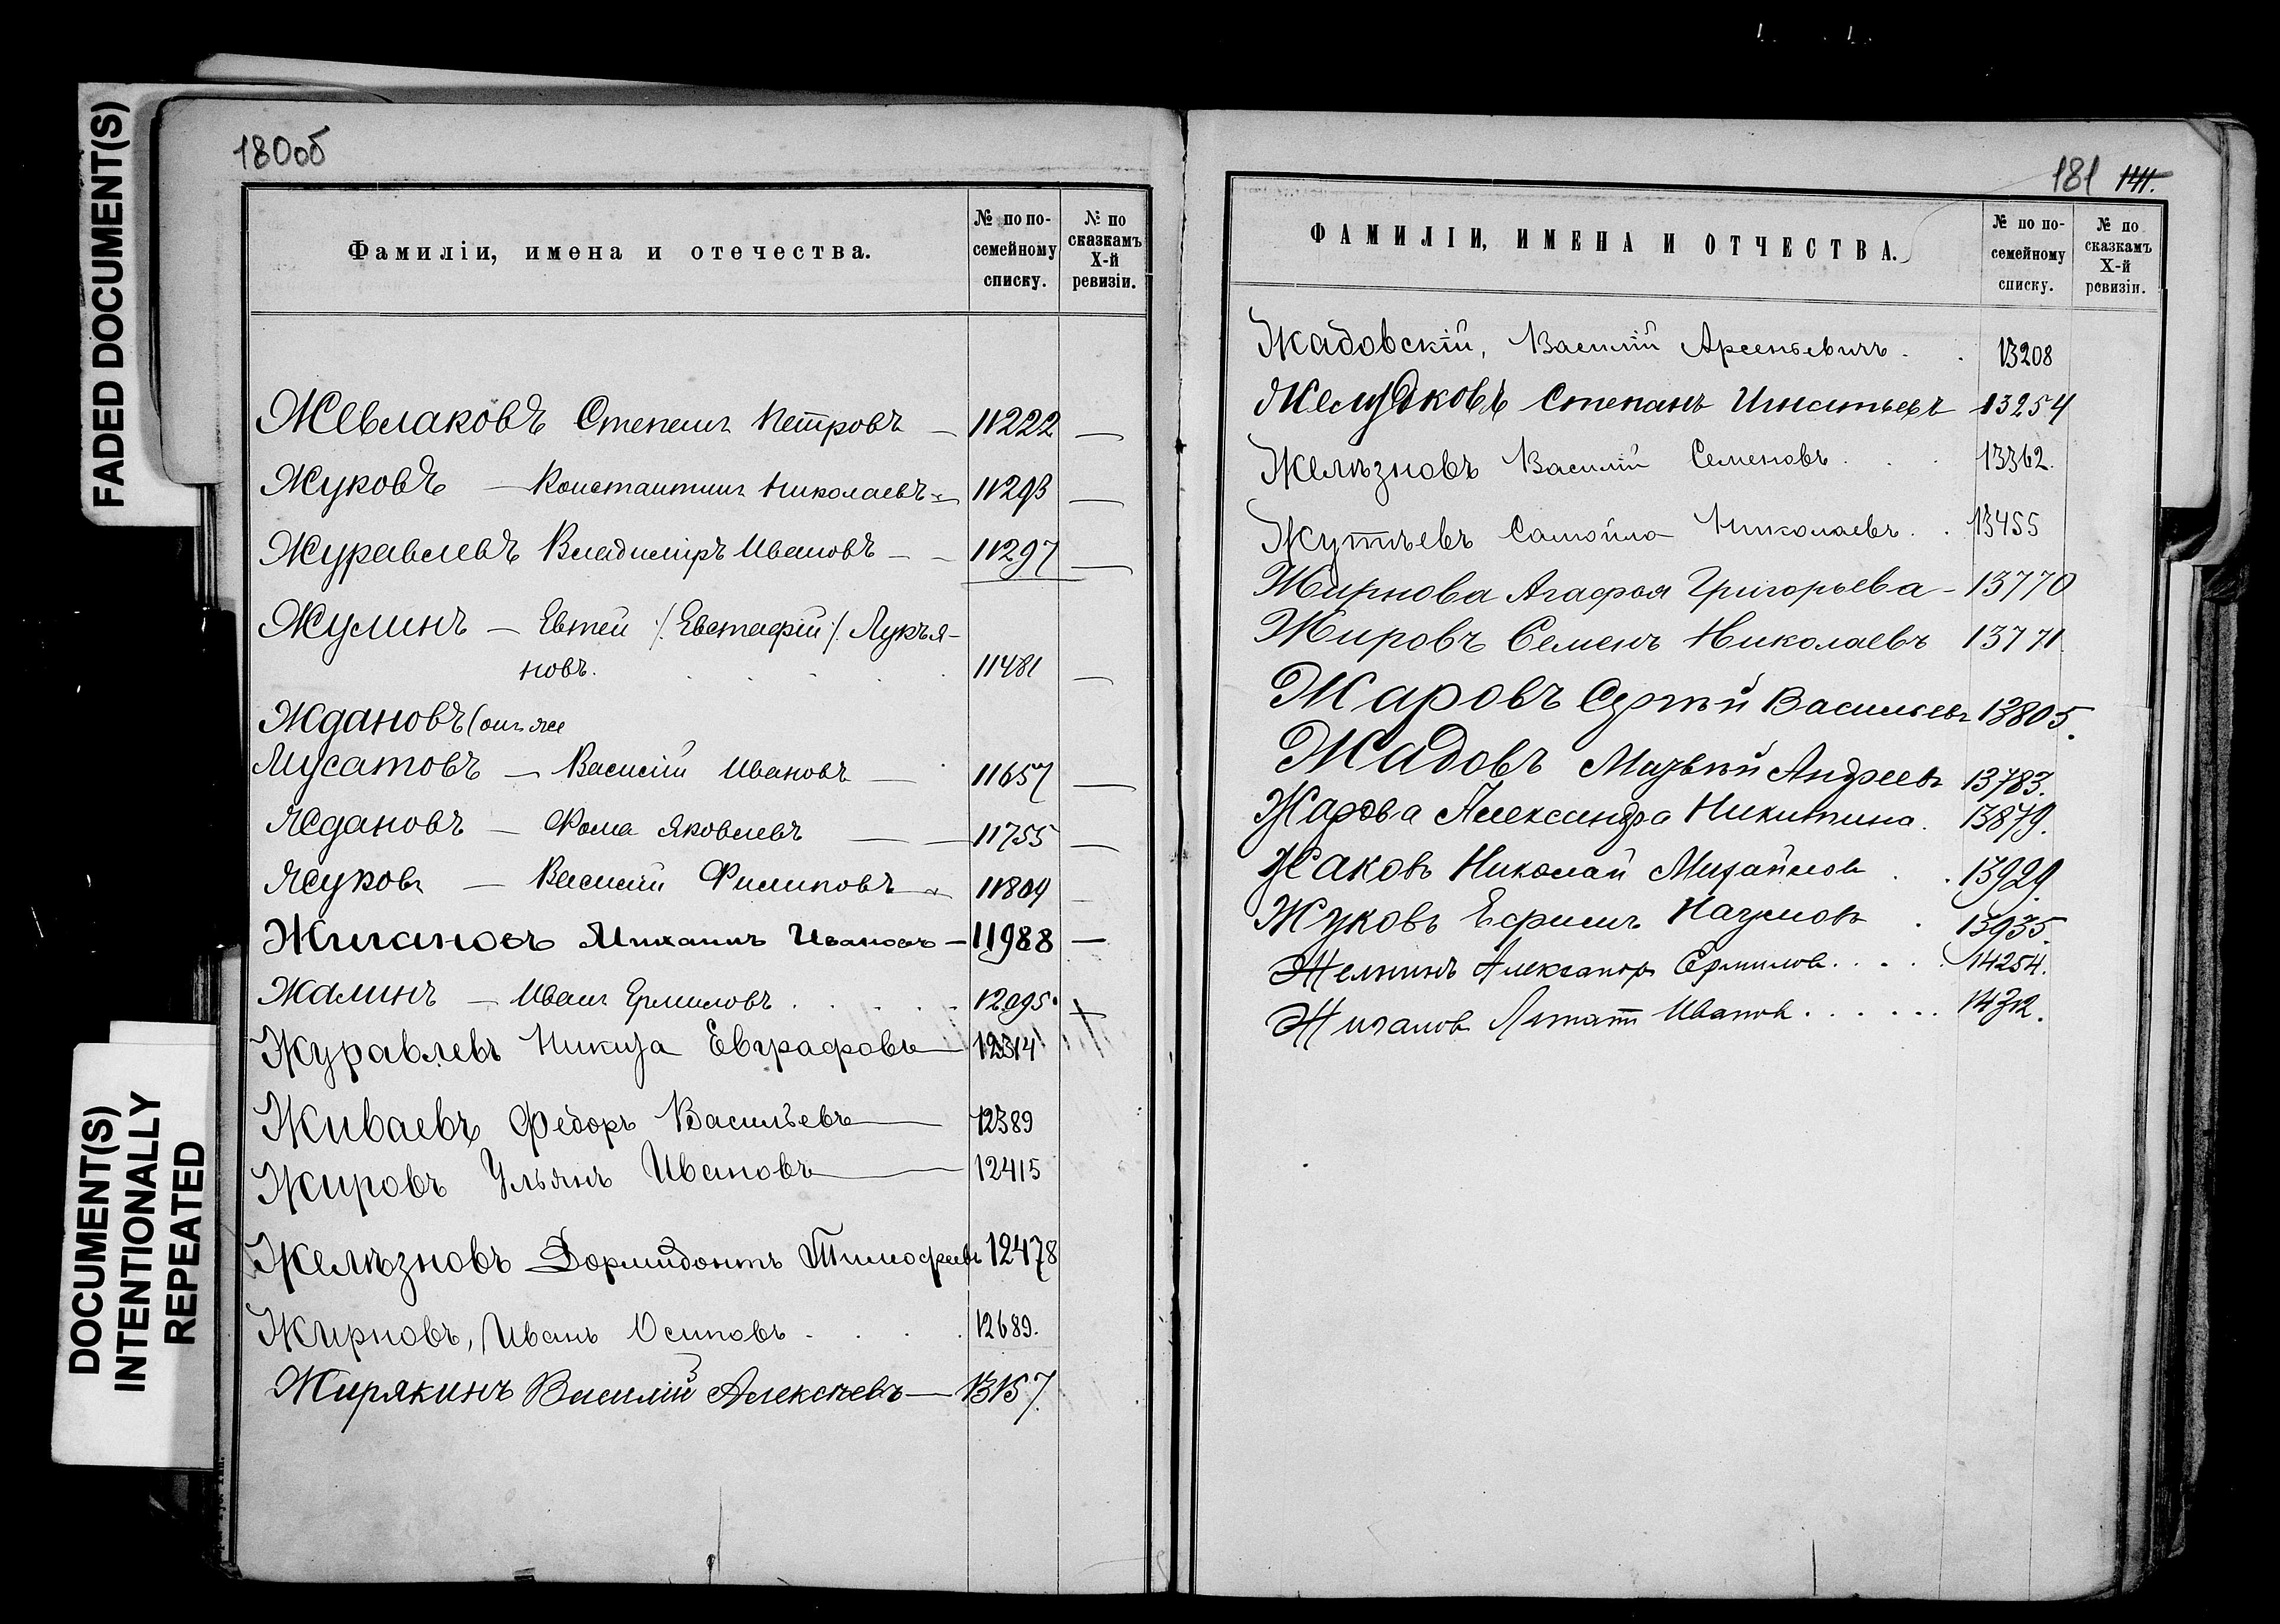 FADED DOCUMENT(S)
DOCUMENT(S)
INTENTIONALLY
REPEATED
180об
Фамиліи, имена и отечества.
№ по по-
семейному
списку.
№ по
сказкамъ
X-й
ревизіи.
Жевлаковъ Степанъ Петровъ — 11222 —
Жуковъ — Константинъ Николаевъ — 11293 —
Журавлевъ Владиміръ Ивановъ — — 11297 —
Жулинъ — Евтей /. Евстафій ./ Лукъя-
новъ. 11481 —
Ждановъ (онъ же
Мусатовъ — Василій Ивановъ — 11657 —
Ждановъ — Фома Яковлевъ — 11755 —
Жуковъ — Василій Филиповъ — 11809
Жигановъ Михаилъ Ивановъ — 11988 —
Жалинъ — Иванъ Ермиловъ . . . . . 12095.
Журавлевъ Никита Евграфовъ — 12314
Живаевъ Федоръ Васильевъ — 12389
Жировъ Ульянъ Ивановъ — 12415
Желѣзновъ Дормидонтъ Тимофеевъ 12478
Жирновъ, Иванъ Осиповъ . . . . 12689.
Жирякинъ Василій Алексѣевъ — 13157.
181 141.
ФАМИЛІИ, ИМЕНА И ОТЧЕСТВА.
№ по по-
семейному
списку.
№ по
сказкамъ
X-й
ревизіи.
Жадовскій, Василій Арсеньевичъ . . 13208
Желудковъ Степанъ Игнатьевъ 13254
Желѣзновъ Василій Семеновъ . . . 13362.
Жутяевъ Самойло Николаевъ . . 13455
Жирнова Агафья Григорьева — 13770
Жировъ Семенъ Николаевъ 13771.
Жаровъ Сергѣй Васильевъ 13805.
Жадовъ Андреевъ 13783.
Жарова Александра Никитина. 13879.
Жаковъ Николай Михайловъ . . 13929.
Жуковъ Ефримъ Наумовъ . 13935.
Желнинъ Александръ Ермиловъ . . . . 14254.
Жигалов Игнат Иванов . . . . . . 14312.